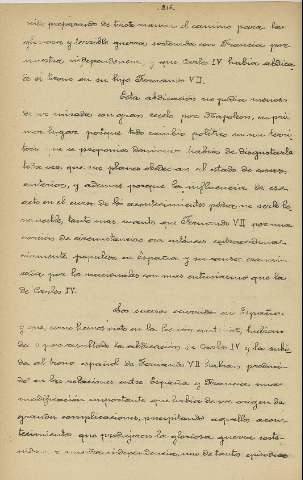 316.
preparando de triste manera el camino para la
gloriosa y terrible guerra sostenida con Francia por
nuestra independencia, y que Carlos IV había abdica-
do el trono en su hijo Fernando VII.
Esta abdicación no podía menos
de ser mirada con gran recelo por Napoleón, en pri-
mer lugar porque todo cambio político en un terri-
torio que se proponía dominar había de disgustarle
toda vez que sus planes al estado de cosas
anterior, y además porque la influencia de ese
acto en el curso de los acontecimientos podía no serle fa-
vorable, tanto mas cuanto que Fernando VII por una
porción de circunstancias era entonces extraordinar-
iamente popular en España y su causa
por los nacionales con mas entusiasmo que la
de Carlos IV.
Los sucesos ocurridos en España
y que como hemos visto en la lección anterior, habían
dado por resultado la abdicación de Carlos IV y la subi-
da al trono español de Fernando VII habían produci-
do en las relaciones entre España y Francia una
modificación importante que había de ser origen de
grandes complicaciones, precipitando aquellos acon-
tecimientos que produjeron la gloriosa guerra soste-
nida nuestra independencia, uno de tantos episodios